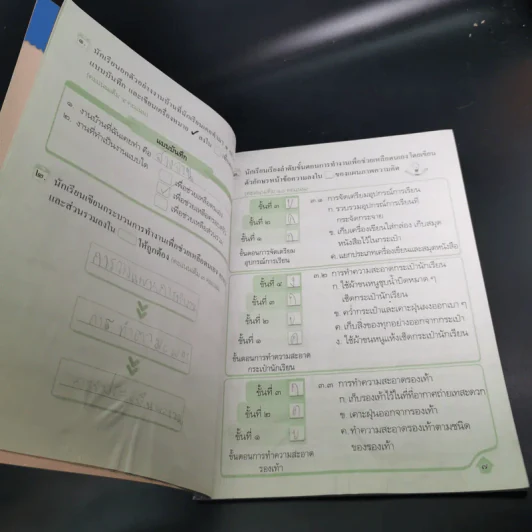 ๑ นักเรียนยกตัวอย่างงานบ้านที่นักเรียนเคยทำมา
แบบบันทึก และเขียนเครื่องหมาย ✓ ลงใน
แบบบันทึก
๑. งานบ้านที่ฉันเคยทำ คือ
๒. งานที่ทำเป็นงานแบบใด
เพื่อช่วยเหลือตนเอง
เพื่อช่วยเหลือครอบครัว
เพื่อช่วยเหลือส่วนรวม
๒ นักเรียนเขียนกระบวนการทำงานเพื่อช่วยเหลือตนเอง
และส่วนรวมลงใน ให้ถูกต้อง
นักเรียนเรียงลำดับขั้นตอนการทำงานเพื่อช่วยเหลือตนเอง โดยเขียน
ตัวอักษรหน้าข้อความลงใน ของแผนภาพความคิด
ขั้นที่ ๓
ขั้นที่ ๒
ขั้นที่ ๑
ขั้นตอนการจัดเตรียม
อุปกรณ์การเรียน
๓.๑ การจัดเตรียมอุปกรณ์การเรียน
ก. รวบรวมอุปกรณ์การเรียนที่
กระจัดกระจาย
ข. เก็บเครื่องเขียนใส่กล่อง เก็บสมุด
หนังสือไว้ในกระเป๋า
ค. แยกประเภทเครื่องเขียนและสมุดหนังสือ
ขั้นที่ ๔ ง
ขั้นที่ ๓ ก
ขั้นที่ ๒ ข
ขั้นที่ ๑ ค
ขั้นตอนการทำความสะอาด
กระเป๋านักเรียน
๓.๒ การทำความสะอาดกระเป๋านักเรียน
ก. ใช้ผ้าขนหนูชุบน้ำบิดหมาด ๆ
เช็ดกระเป๋านักเรียน
ข. คว่ำกระเป๋าและเคาะฝุ่นผงออกเบา ๆ
ค. เก็บสิ่งของทุกอย่างออกจากกระเป๋า
ง. ใช้ผ้าขนหนูแห้งเช็ดกระเป๋านักเรียน
ขั้นที่ ๓ ก
ขั้นที่ ๒ ค
ขั้นที่ ๑ ข
ขั้นตอนการทำความสะอาด
รองเท้า
๓.๓ การทำความสะอาดรองเท้า
ก. เก็บรองเท้าไว้ในที่ที่อากาศถ่ายเทสะดวก
ข. เคาะฝุ่นออกจากรองเท้า
ค. ทำความสะอาดรองเท้าตามชนิด
ของรองเท้า